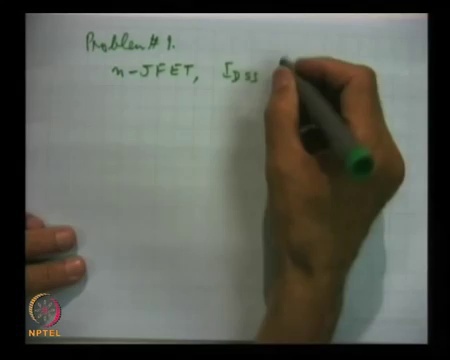 Problem # 1.
n-JFET, IDSS
NPTEL